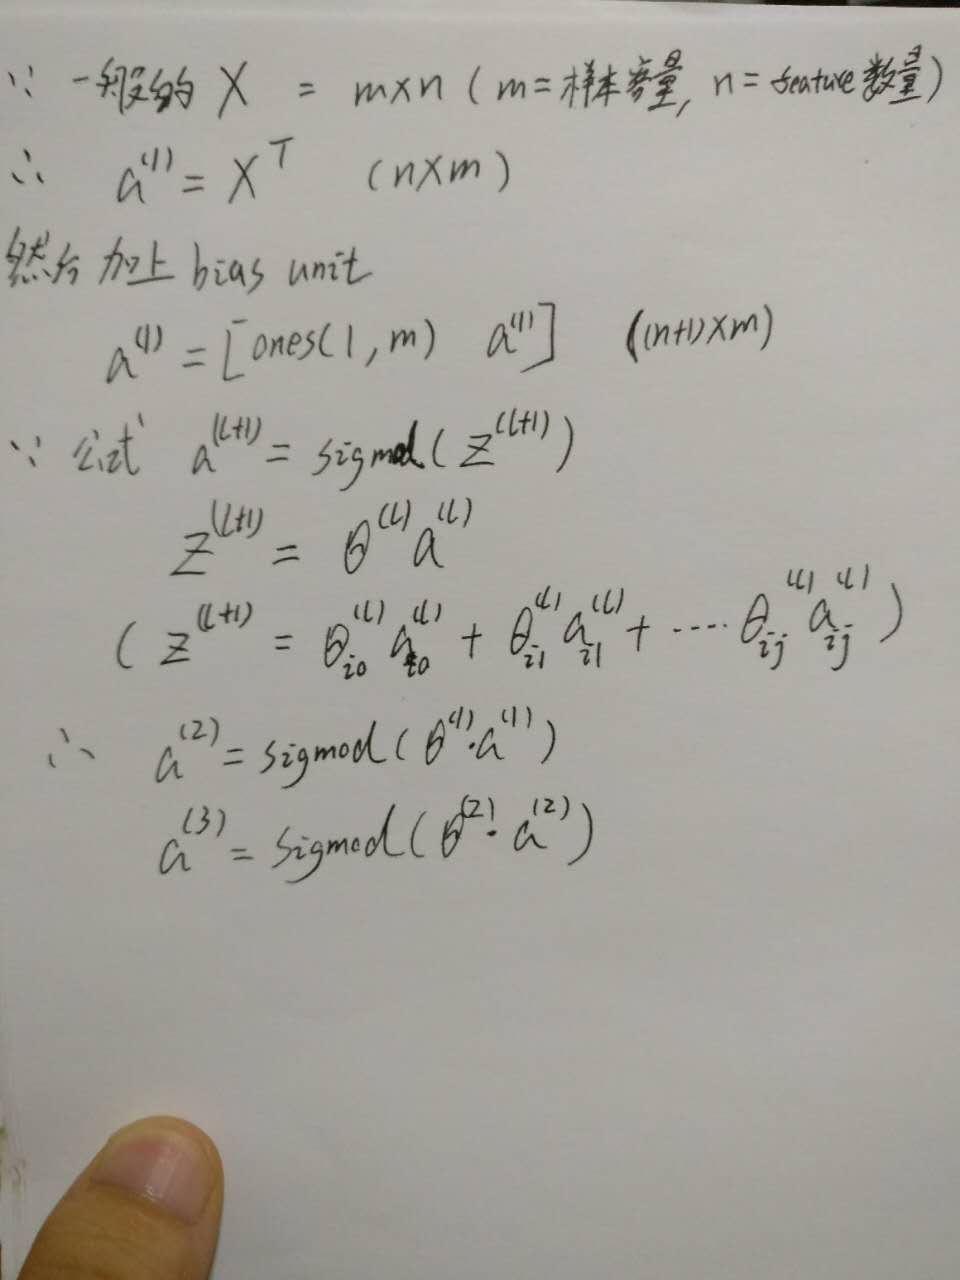 ∵ 一般的 X = m×n ( m=样本容量, n=feature数量)
∴ a⁽¹⁾ = Xᵀ (n×m)
然后 加上 bias unit
a⁽¹⁾ = [ones(1, m) a⁽¹⁾] ((n+1)×m)
∵ 公式 a⁽ˡ⁺¹⁾ = sigmod( z⁽ˡ⁺¹⁾ )
z⁽ˡ⁺¹⁾ = θ⁽ˡ⁾ a⁽ˡ⁾
( z⁽ˡ⁺¹⁾ = θ_{i0}⁽ˡ⁾ a_{i0}⁽ˡ⁾ + θ_{i1}⁽ˡ⁾ a_{i1}⁽ˡ⁾ + ····· θ_{ij}⁽ˡ⁾ a_{ij}⁽ˡ⁾ )
∴ a⁽²⁾ = sigmod( θ⁽¹⁾·a⁽¹⁾ )
a⁽³⁾ = sigmod( θ⁽²⁾· a⁽²⁾ )